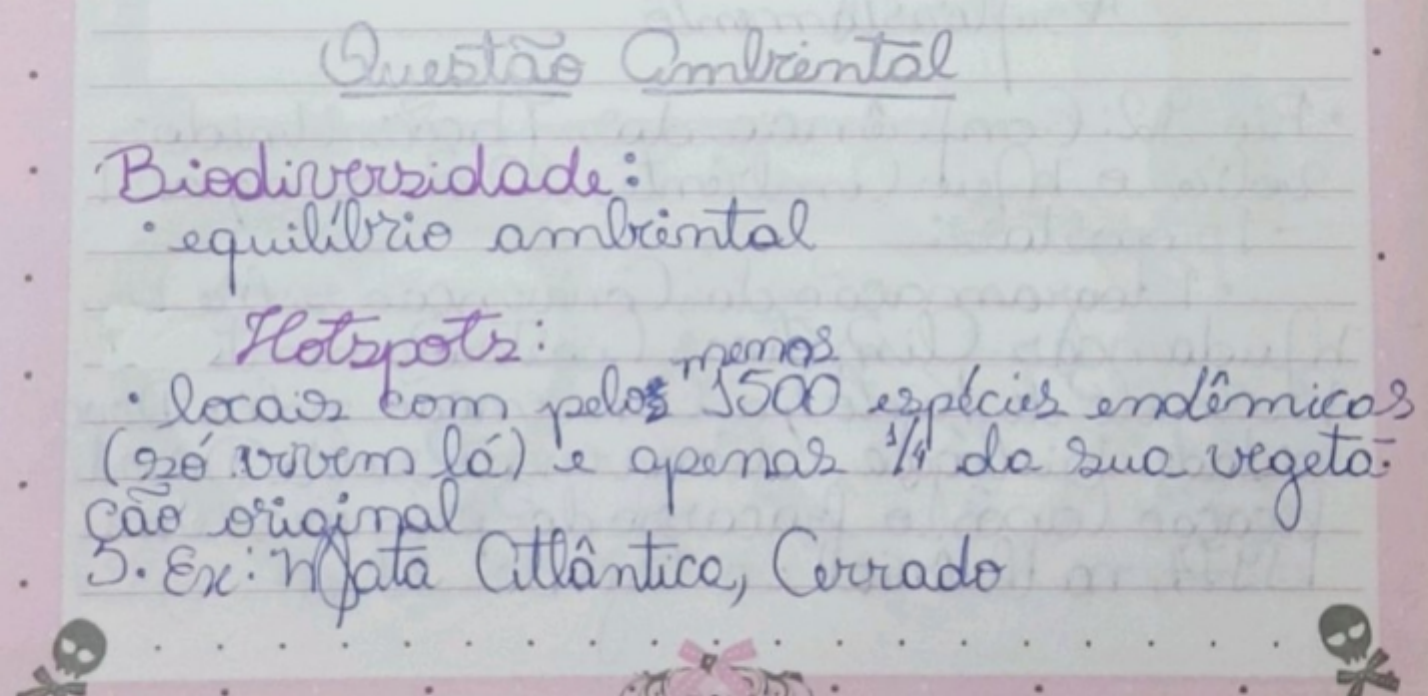 Questão Ambiental
Biodiversidade:
• equilíbrio ambiental
Hotspots:
menos
• locais com pelos 1500 espécies endêmicas
(só vivem lá) e apenas 1/4 da sua vegeta-
ção original
5. Ex: Mata Atlântica, Cerrado